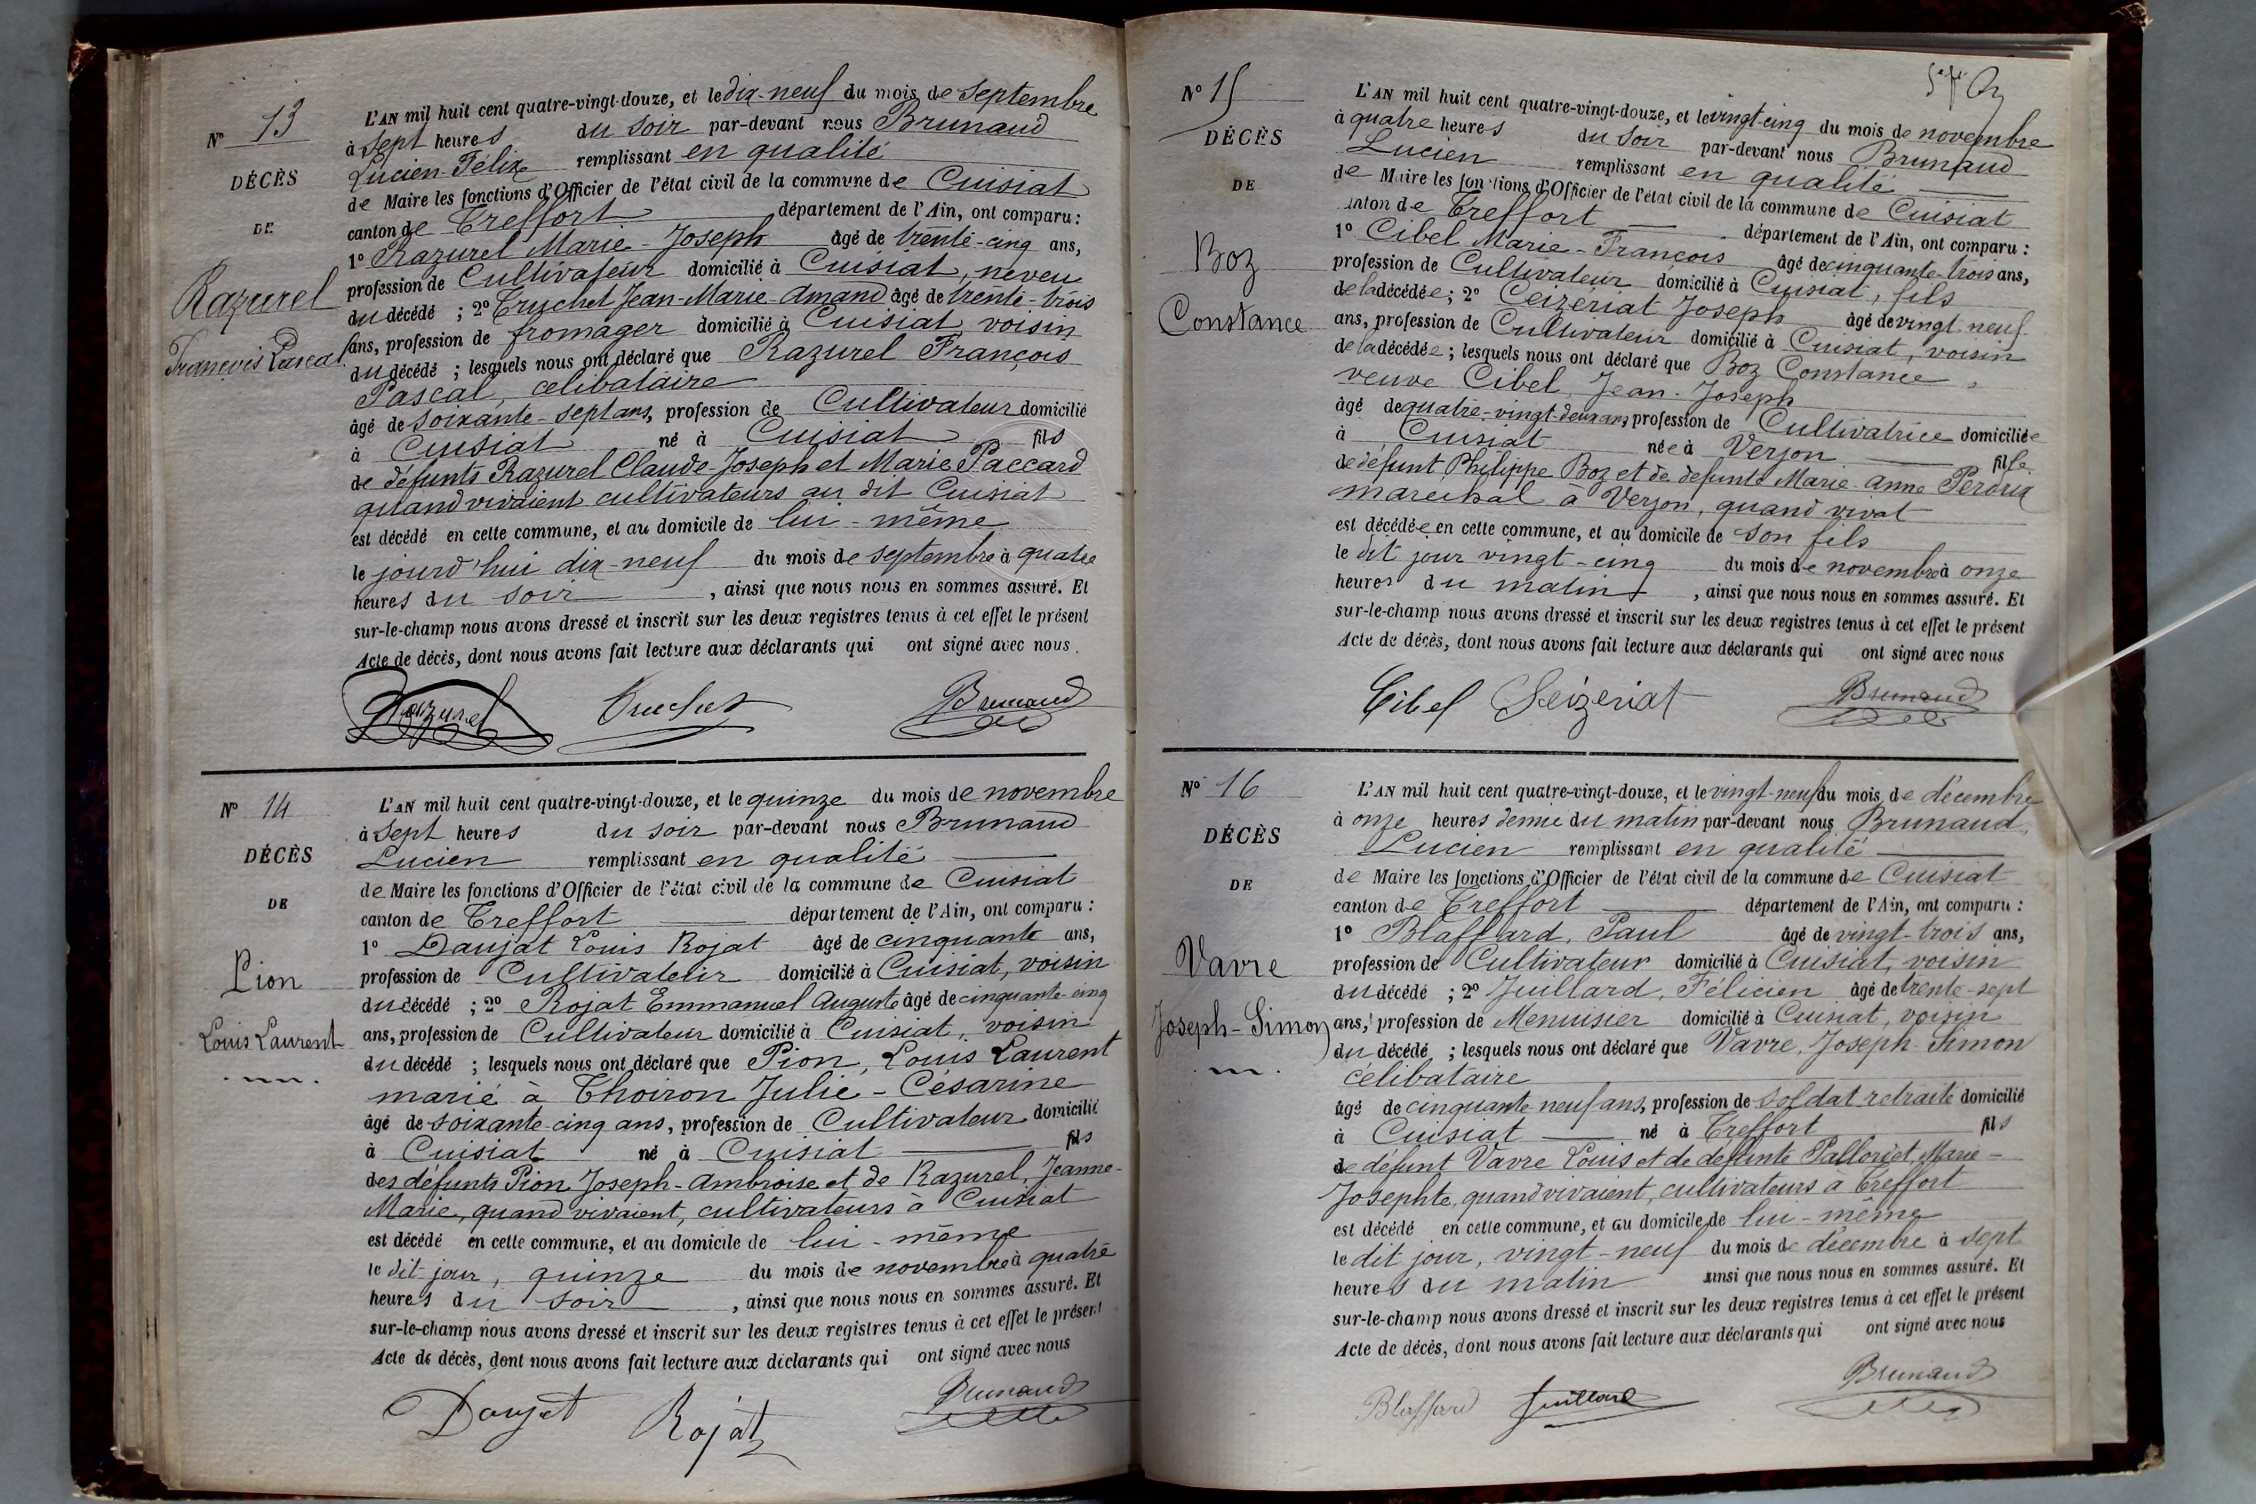 Nº 13
DÉCÈS
DE
Razurel
François Pascal
L'AN mil huit cent quatre-vingt-douze, et le dix-neuf du mois de septembre
à sept heures du soir par-devant nous Brunaud
Lucien-Félix remplissant en qualité
de Maire les fonctions d'Officier de l'état civil de la commune de Cuisiat
canton de Treffort département de l'Ain, ont comparu :
1º Razurel Marie-Joseph âgé de trente-cinq ans,
profession de Cultivateur domicilié à Cuisiat, neveu
du décédé ; 2º Truchet Jean-Marie-Amand âgé de trente-trois
ans, profession de fromager domicilié à Cuisiat, voisin
du décédé ; lesquels nous ont déclaré que Razurel François
Pascal, célibataire
âgé de soixante-sept ans, profession de Cultivateur domicilié
à Cuisiat né à Cuisiat fils
de défunts Razurel Claude-Joseph et Marie Paccard
quand vivaient cultivateurs au dit Cuisiat
est décédé en cette commune, et au domicile de lui-même
le jourd'hui dix-neuf du mois de septembre à quatre
heures du soir , ainsi que nous nous en sommes assuré. Et
sur-le-champ nous avons dressé et inscrit sur les deux registres tenus à cet effet le présent
Acte de décès, dont nous avons fait lecture aux déclarants qui ont signé avec nous.
Razurel Truchet Brunaud
Nº 14
DÉCÈS
DE
Pion
Louis Laurent
L'AN mil huit cent quatre-vingt-douze, et le quinze du mois de novembre
à sept heures du soir par-devant nous Brunaud
Lucien remplissant en qualité
de Maire les fonctions d'Officier de l'état civil de la commune de Cuisiat
canton de Treffort département de l'Ain, ont comparu :
1º Daujat Louis Rojat âgé de cinquante ans,
profession de Cultivateur domicilié à Cuisiat, voisin
du décédé ; 2º Rojat Emmanuel Auguste âgé de cinquante-cinq
ans, profession de Cultivateur domicilié à Cuisiat, voisin
du décédé ; lesquels nous ont déclaré que Pion, Louis Laurent
marié à Thoiron Julie-Césarine
âgé de soixante-cinq ans, profession de Cultivateur domicilié
à Cuisiat né à Cuisiat fils
des défunts Pion Joseph-Ambroise et de Razurel, Jeanne-
Marie, quand vivaient, cultivateurs à Cuisiat
est décédé en cette commune, et au domicile de lui-même
le dit jour, quinze du mois de novembre à quatre
heures du soir , ainsi que nous nous en sommes assuré. Et
sur-le-champ nous avons dressé et inscrit sur les deux registres tenus à cet effet le présent
Acte de décès, dont nous avons fait lecture aux déclarants qui ont signé avec nous
Daujat Rojat Brunaud
Nº 15
DÉCÈS
DE
Boz
Constance
L'AN mil huit cent quatre-vingt-douze, et le vingt-cinq du mois de novembre
à quatre heures du soir par-devant nous Brunaud
Lucien remplissant en qualité
de Maire les fonctions d'Officier de l'état civil de la commune de Cuisiat
anton de Treffort département de l'Ain, ont comparu :
1º Cibel Marie-François âgé de cinquante-trois ans,
profession de Cultivateur domicilié à Cuisiat, fils
de la décédée ; 2º Ceizeriat Joseph âgé de vingt-neuf
ans, profession de Cultivateur domicilié à Cuisiat, voisin
de la décédée ; lesquels nous ont déclaré que Boz Constance,
veuve Cibel Jean-Joseph
âgé de quatre-vingt-deux ans profession de Cultivatrice domiciliée
à Cuisiat née à Verjon fille
de défunt Philippe Boz et de défunte Marie-Anne Perdrix
marechal à Verjon, quand vivat
est décédée en cette commune, et au domicile de son fils
le dit jour vingt-cinq du mois de novembre à onze
heures du matin , ainsi que nous nous en sommes assuré. Et
sur-le-champ nous avons dressé et inscrit sur les deux registres tenus à cet effet le présent
Acte de décès, dont nous avons fait lecture aux déclarants qui ont signé avec nous
Cibel Seizeriat Brunaud
Nº 16
DÉCÈS
DE
Vavre
Joseph-Simon
L'AN mil huit cent quatre-vingt-douze, et le vingt-neuf du mois de décembre
à onze heures demie du matin par-devant nous Brunaud,
Lucien remplissant en qualité
de Maire les fonctions d'Officier de l'état civil de la commune de Cuisiat
canton de Treffort département de l'Ain, ont comparu :
1º Blaffard, Paul âgé de vingt-trois ans,
profession de Cultivateur domicilié à Cuisiat, voisin
du décédé ; 2º Juillard, Félicien âgé de trente-sept
ans, profession de Menuisier domicilié à Cuisiat, voisin
du décédé ; lesquels nous ont déclaré que Vavre, Joseph-Simon
célibataire
âgé de cinquante-neuf ans, profession de soldat retraité domicilié
à Cuisiat né à Treffort fils
de défunt Vavre Louis et de défunte Pallordet, Marie-
Josephte, quand vivaient, cultivateurs à Treffort
est décédé en cette commune, et au domicile de lui-même
le dit jour, vingt-neuf du mois de décembre à sept
heures du matin ainsi que nous nous en sommes assuré. Et
sur-le-champ nous avons dressé et inscrit sur les deux registres tenus à cet effet le présent
Acte de décès, dont nous avons fait lecture aux déclarants qui ont signé avec nous
Blaffard Juillard Brunaud